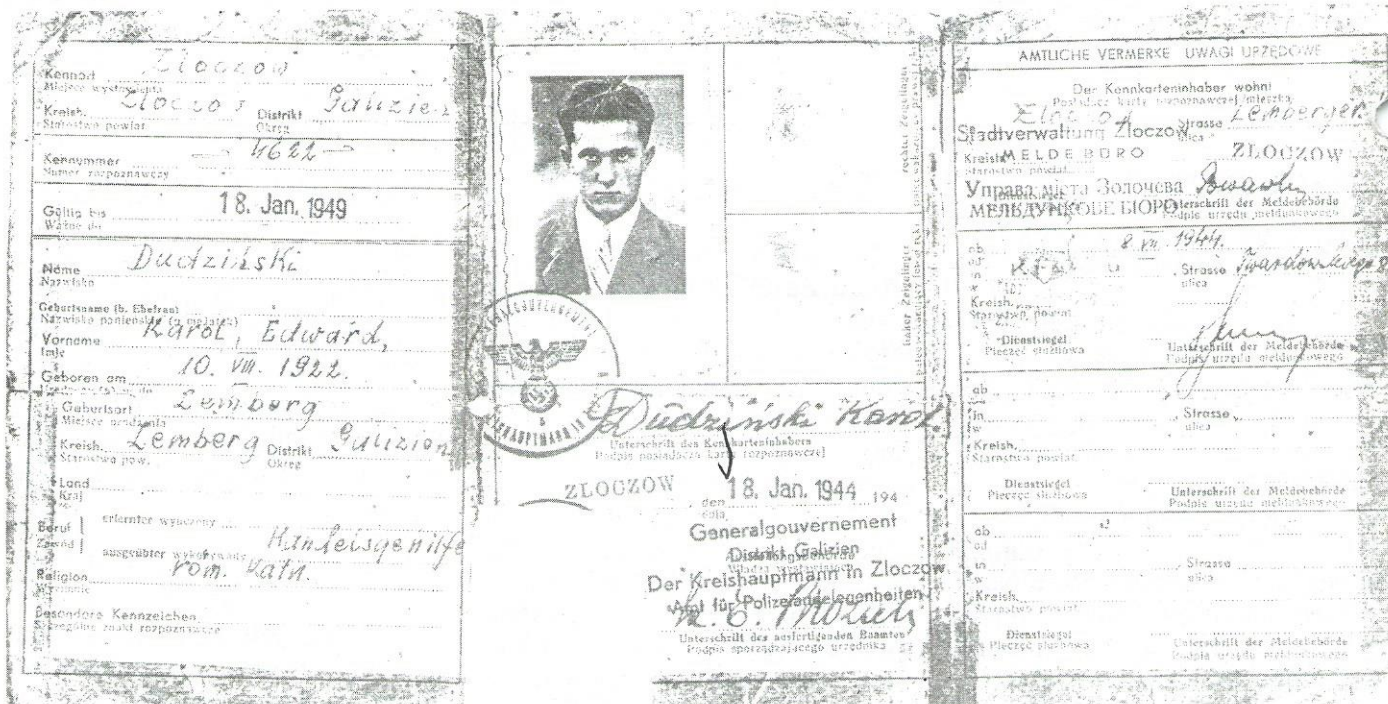 Kennort Zloczow
Miejsce wystawienia
Kreish. Zloczow Distrikt Galizien
Starostwo powiat. Okręg
Kennummer 4622
Numer rozpoznawczy
Gültig bis 18. Jan. 1949
Ważne do
Name Dudziński
Nazwisko
Geburtsname (b. Ehefrau)
Nazwisko panieńskie (u mężatek)
Vorname Karol, Edward,
Imię
Geboren am 10. VIII. 1922.
Geburtsort Lemberg
Miejsce urodzenia
Kreish. Lemberg Distrikt Galizien
Starostwo pow. Okręg
Land
Kraj
Beruf erlernter wyuczony
Zawód
ausgeübter wykonywany Handelsgehilfe
Religion röm. kath.
Wyznanie
Besondere Kennzeichen
Szczególne znaki rozpoznawcze
rechter Zeigefinger
linker Zeigefinger
GENERALGOUVERNEMENT
KREISHAUPTMANN IN
Dudziński Karol
Unterschrift des Kennkarteninhabers
Podpis posiadacza karty rozpoznawczej
ZLOCZOW den 18. Jan. 1944 194
dnia
Generalgouvernement
Distrikt Galizien
Der Kreishauptmann in Zloczow
Amt für Polizeiangelegenheiten
Unterschrift des ausfertigenden Beamten
Podpis sporządzającego urzędnika
AMTLICHE VERMERKE UWAGI URZĘDOWE
Der Kennkarteninhaber wohnt
Posiadacz karty rozpoznawczej mieszka
Zloczow Strasse Lemberger
Stadtverwaltung Zloczow ulica
Kreish. MELDEBÜRO ZLOCZOW
Starostwo powiat.
Управа міста Золочева
МЕЛЬДУНКОВЕ БЮРО Unterschrift der Meldebehörde
Podpis urzędu meldunkowego
ab 8. VII. 1944.
od
in Strasse Twardowskiego 8
w ulica
Kreish.
Starostwo powiat.
Dienstsiegel Unterschrift der Meldebehörde
Pieczęć służbowa Podpis urzędu meldunkowego
ab
od
in Strasse
w ulica
Kreish.
Starostwo powiat.
Dienstsiegel Unterschrift der Meldebehörde
Pieczęć służbowa Podpis urzędu meldunkowego
ab
od
in Strasse
w ulica
Kreish.
Starostwo powiat.
Dienstsiegel Unterschrift der Meldebehörde
Pieczęć służbowa Podpis urzędu meldunkowego